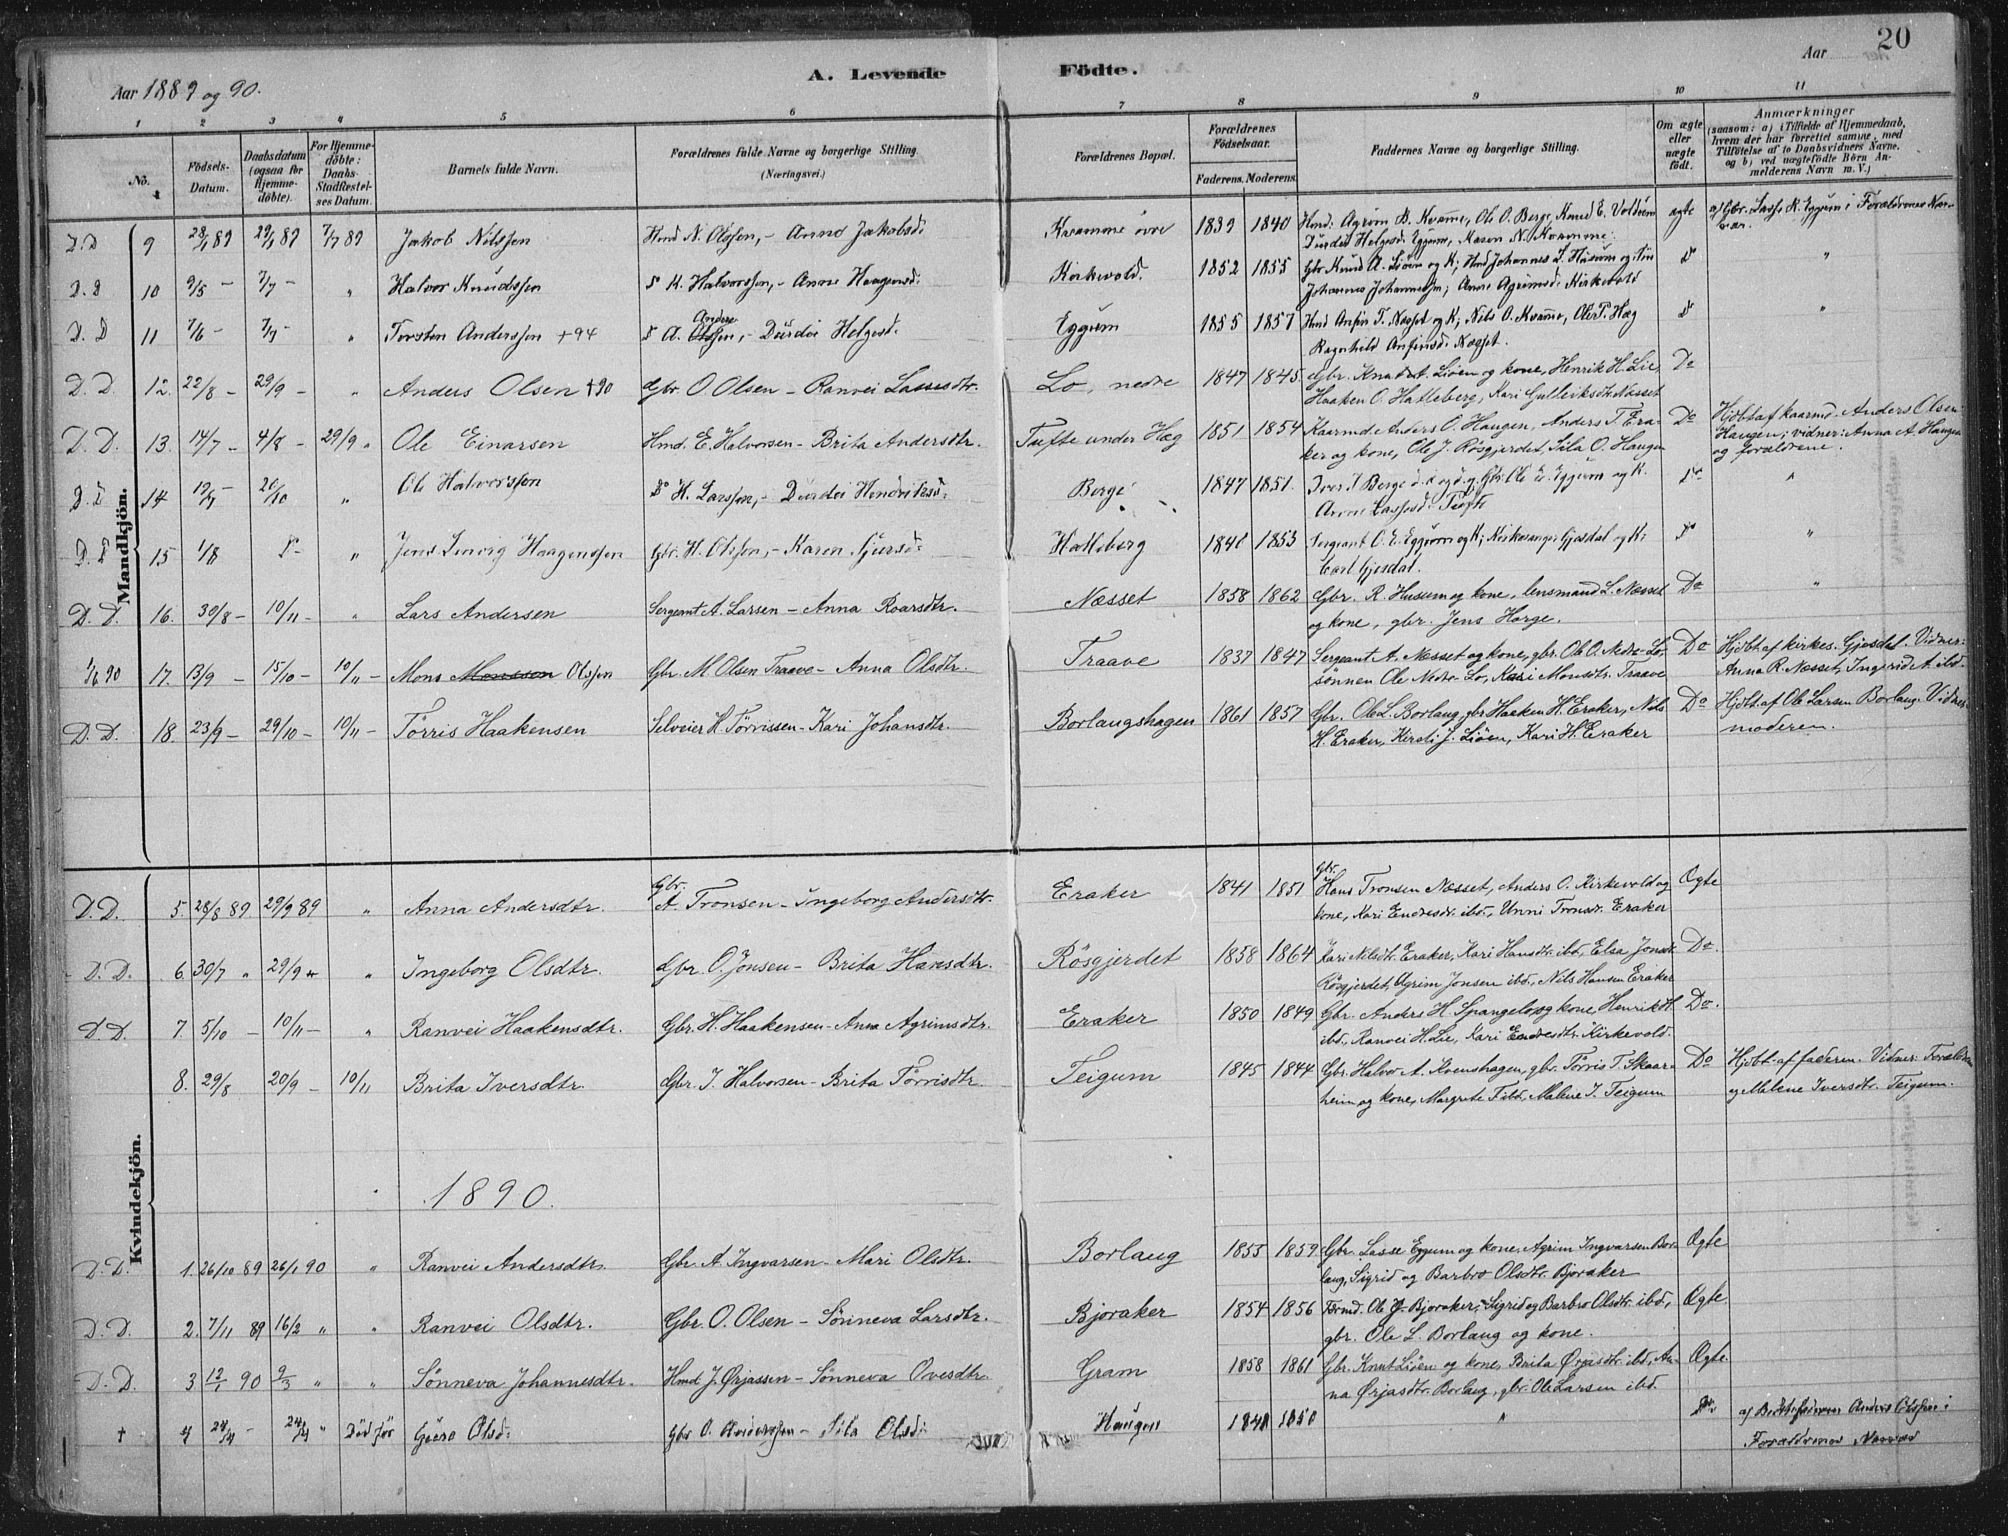 20
Aar 1889 og 90.
A. Levende Födte.
Aar
1 2 3 4 5 6 7 8 9 10 11
No.
Födsels-Datum.
Daabsdatum (ogsaa for Hjemmedöbte).
For Hjemmedöbte: Daabs-Stadfæstelses Datum.
Barnets fulde Navn.
Forældrenes fulde Navne og borgerlige Stilling. (Næringsvei.)
Forældrenes Bopæl.
Forældrenes Födselsaar.
Faderens. Moderens.
Faddernes Navne og borgerlige Stilling.
Om ægte eller uægte födt.
Anmærkninger (saasom: a) i Tilfælde af Hjemmedaab, hvem der har forrettet samme, med Tilföielse af to Daabsvidners Navne. og b) ved uægtefödte Börn Anmelderens Navn m. V.)
Mandkjön.
D.D 9 28/1 89 29/1 89 7/7 89 Jakob Nilssen Hmd N. Olssen, - Anna Jakobsd: Kvamme övre 1839 1840 Hmd: Agrim B. Kvamme, Ole O. Berge, Knud E. Voldum ægte a) Gbr. Lasse R. Eggum i Forældrenes Nær-
Durdei Helgesd: Eggum, Maren N. Kvamme. vær.
D.D 10 9/5 - 7/7 - " Halvor Knudssen D° K. Halvorssen, - Anne Haagensd: Kirkevold. 1852 1855 Gbr Knud A. Liöen og K; Hmd Johannes L. Husum og
Johannes Johannessen; Anne Agrimsd: Kirkevold D° "
D.D 11 7/6 - 7/7 - " Torsten Anderssen +94 D° A. Olssen, - Durdei Helgesd: Eggum 1855 1857 Hmd Anfin T. Næsset og K; Nils O. Kvamme, Ole P. Hæg D° "
Ragnhild Anfinsd: Næsset.
D.D. 12. 22/8 - 29/9 - " Anders Olsen +90 Gbr. O. Olsen - Ranvei Lassesdtr. Lo, nedre 1847 1845 Gbr. Knut A. Liöen og kone, Henrik H. Lie, D°
Haaken O. Hatleberg, Kari Gulleiksdtr. Næsset
D.D. 13. 14/7 - 4/8 - 29/9 " Ole Einarsen Hmd. E. Halvorsen - Brita Andersdtr. Tufte under Hæg 1851 1854 Kaarmd. Anders O. Haugen, Anders T. Era- D° Hjdbt af kaarmd. Anders Olsen
ker og kone, Ole J. Rösgjerdet, Sila O. Haugen Haugen; vidner: Anna A. Haugen
og forældrene.
D.D 14 19/9 20/10 " Ole Halvorssen D° H. Larssen, - Durdei Hendriksd: Berge 1847 1851. Iver I Berge Gbr. Ole E. Eggum og K. D° "
Anne Lassesd: Tufte
D.D 15 1/8 D° - " Jens Haagenssen Gbr. H. Olssen, - Karen Sjursd: Hatleberg 1840 1853 Sergeant O. E. Eggum og K; Kirkesanger Gjesdal og K; D° "
Carl Gjesdal.
D.D. 16. 30/8 - 10/11 - " Lars Andersen Sergeant A. Larsen - Anna Roarsdtr. Næsset 1858 1862 Gbr. R. Husum og kone, lensmand L. Næsset D° "
og kone, gbr. Jens Horge.
1/6 90 17. 13/9 - 15/10 - 10/11 - Mons Monssen Olssen Gbr. M. Olsen Traave - Anna Olsdtr. Traave 1837 1847 Sergeant A. Næsset og kone, gbr. Ole O. Nedre-Lo, D° Hjdbt af kirkes. Gjesdal. Vidner:
sönnen Ole Nedre-Lo, Kari Monsdtr. Traave Anna R. Næsset, Ingerid A. ibd.
D.D. 18. 23/9 - 29/10 - 10/11 - Törris Haakensen Selveier H. Törrissen - Kari Johansdtr. Borlaugshagen 1861 1857 Gbr. Ole L. Borlaug, gbr Haaken H. Eraker, Nils D° Hjdbt. af Ole Larsen Borlaug. Vidne:
H. Eraker, Kirsti J. Liöen, Kari H. Eraker moderen.
Kvindekjön.
D.D. 5. 28/8 89 29/9 89 " Anna Andersdtr. Gbr. A. Tronsen - Ingeborg Andersdtr. Eraker 1841 1851 Gbr. Hans Tronsen Næsset, Anders O. Kirkevold og Ægte
kone, Kari Endresdtr. ibd., Unni Tronsdr. Eraker
D.D. 6. 30/7 " 29/9 " " Ingeborg Olsdtr. Gbr. O. Jonsen - Brita Hansdtr. Rösgjerdet 1858 1864 Kari Nilsdtr. Eraker, Kari Hansdtr ibd., Elsa Jonsdtr D°.
Rösgjerdet, Agrim Jonsen ibd., Nils Hansen Eraker
D.D. 7. 5/10 - 10/11 - " Ranvei Haakensdtr. Gbr. H. Haakensen - Anna Agrimsdtr. Eraker 1850 1849 Gbr. Anders H. Spangelo og kone, Henrik H. D°.
ibd., Ranvei H. Lie, Kari Endresdtr. Kirkevold.
8. 29/8 20/9 - 10/11 Brita Iversdtr. Gbr. I. Halvorsen - Brita Törrisdtr. Teigum 1845 1844 Gbr. Halvor A. Kvenshagen, gbr. Törris T. Skaar- D° Hjdbt. af faderen. Vidner: Forældrene
heim og kone, Margrete T. ibd., Malene I. Teigum og Malene Iversdtr. Teigum.
1890.
D.D. 1. 26/10 89 26/1 90 " Ranvei Andersdtr. Gbr. A Ingvarsen - Mari Olsdtr. Borlaug 1855 1859 Gbr. Lasse Eggum og kone, Agrim Ingvarsen Bor- Ægte
laug, Sigrid og Barbro Olsdtr. Bjoraker
D.D. 2. 7/11 89 16/2 " " Ranvei Olsdtr. Gbr. O. Olsen - Sönneva Larsdtr. Bjoraker 1854 1856 Formd. Ole J. Bjoraker, Sigrid og Barbro Olsdtr. ibd., Ægte
gbr. Ole L. Borlaug og kone.
D.D. 3 12/1 90 9/3 " " Sönneva Johannesdtr. Hmd J. Ørjassen - Sönneva Ovesdtr. Gram 1858 1861 Gbr. Knut Liöen og kone, Brita Ørjasdtr. ibd., An- Ægte
na Ørjasdtr. Borlaug, gbr. Ole Larsen ibd.
+ 4 24/4 - 24/4 " Död för Guro Olsd: Gbr O. Anderssen - Sila Olsd: Haugen 1848 1850 " D° a) Bedstefaderen Anders Olssen i
Forældrenes Nærvær